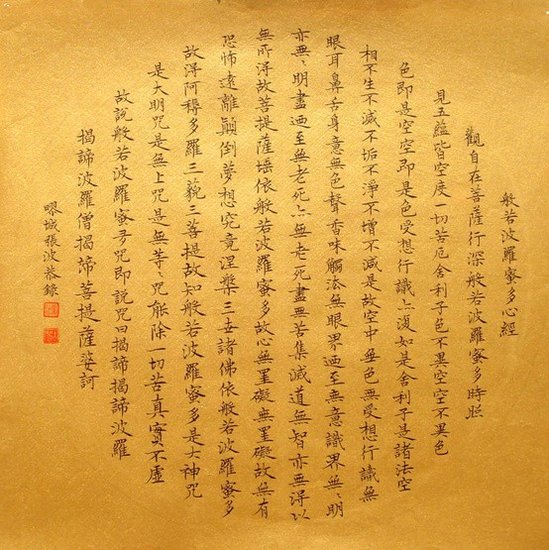 般若波羅蜜多心經
觀自在菩薩行深般若波羅蜜多時照
見五蘊皆空度一切苦厄舍利子色不異空空不異色
色即是空空即是色受想行識亦復如是舍利子是諸法空
相不生不滅不垢不淨不增不減是故空中無色無受想行識無
眼耳鼻舌身意無色聲香味觸法無眼界迺至無意識界無、明
亦無、明盡迺至無老死亦無老死盡無苦集滅道無智亦無得以
無所得故菩提薩埵依般若波羅蜜多故心無罣礙無罣礙故無有
恐怖遠離顛倒夢想究竟涅槃三世諸佛依般若波羅蜜多
故得阿耨多羅三藐三菩提故知般若波羅蜜多是大神咒
是大明咒是無上咒是無等、咒能除一切苦真實不虛
故說般若波羅蜜多咒即說咒曰揭諦揭諦波羅
揭諦波羅僧揭諦菩提薩婆訶
城張波恭錄